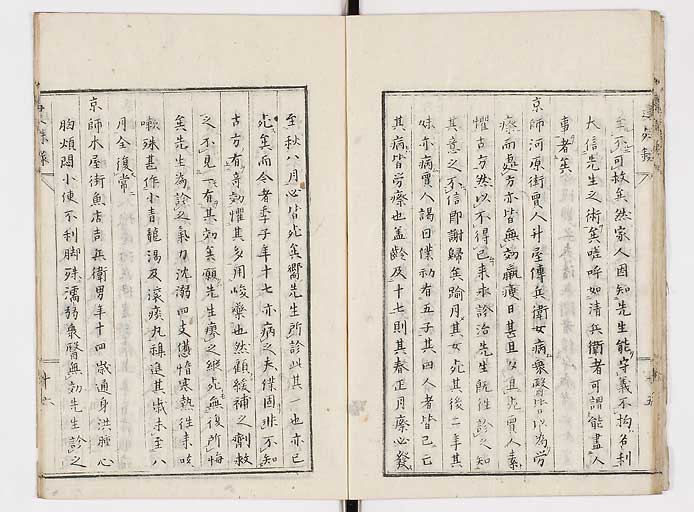 至不可救矣然家人因知先生能守義不拘名利
大信先生之術矣嗟呼如清兵衛者可謂能盡人
事者矣
京師河原街賈人升屋傳兵衛女病衆醫皆以為労
瘵而處方亦皆無効羸瘦日甚且夕且死賈人素
懼古方然以不得已来求診治先生既徃診之知
其意之不信即謝歸矣踰月其女死其後二年其
妹亦病賈人謁曰僕初有五子其四人者皆已亡
其病皆労瘵也盖齢及十七則其春正月瘵必發
至秋八月必皆死矣嚮先生所診此其一也亦已
死矣而今者季子年十七亦病之夫僕固非不知
古方有奇効懼其多用峻藥也然顧緩補之劑救
之不見一有其効矣願先生療之縦死無復所悔
矣先生為診之氣力沈溺四支憊惰寒熱徃来咳
嗽殊甚作小青龍湯及滚痰丸雑進其歳未至八
月全復常
京師木屋街魚店吉兵衛男年十四歳通身洪腫心
胸煩悶小便不利脚殊濡弱衆醫無効先生診之